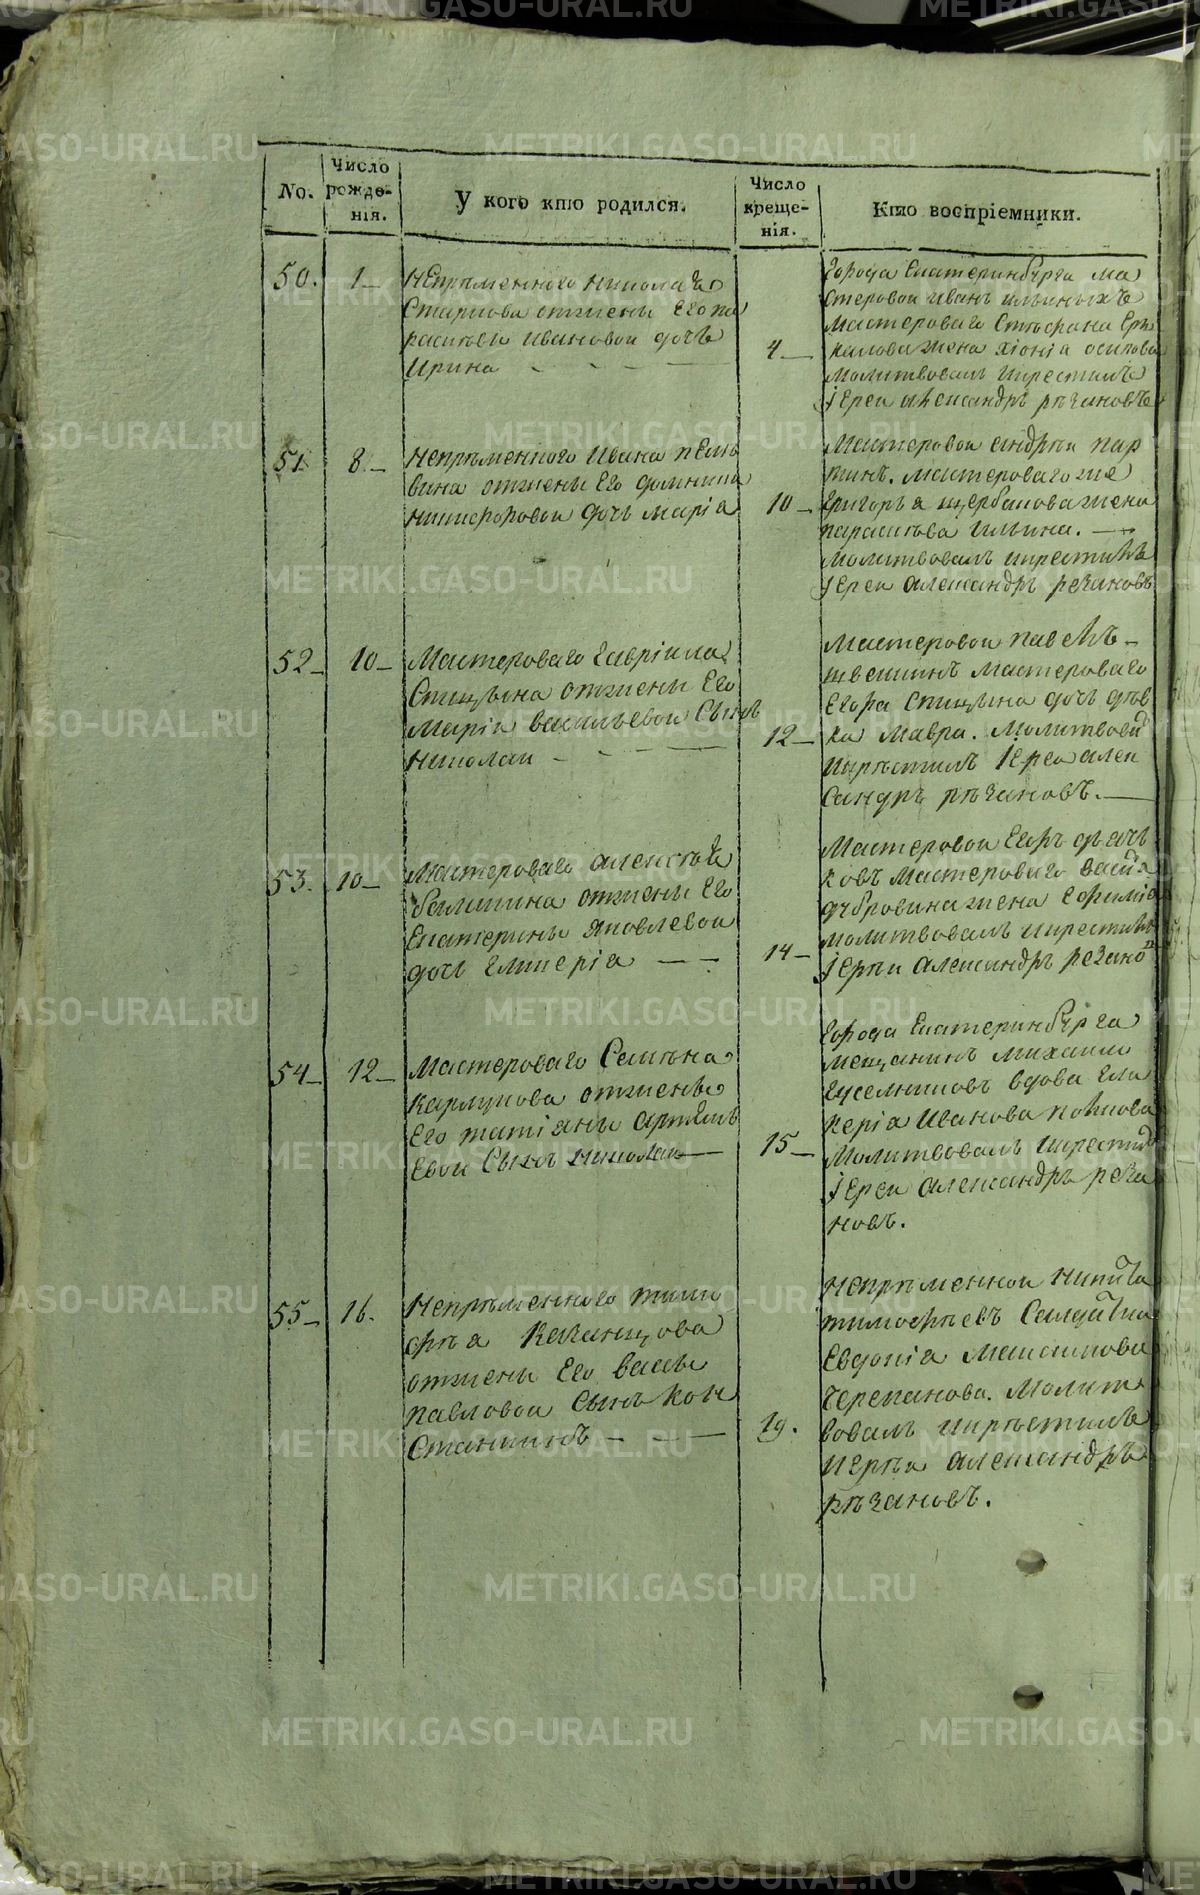 No.
Число рожде-нія.
У кого кто родился.
Число креще-нія.
Кто воспріемники.
50.
1
Непремѣннаго Николая
Смирнова отжены Его па
расковьи Ивановой дочь
Ирина
4
города Екатеринбурга ма
стеровой иванъ ильиныхъ
мастероваго Стефана
жена хіонія осипова
молитвовалъ икрестилъ
іереи алѣксандръ рѣзановъ
51
8
Непремѣнного Ивана
отжены Его домники
никифоровой дочь марія
10
Мастеровой андрѣй пар
шинъ. мастероваго же
Григорья щербакова жена
параскова ильина.
Молитвовалъ икрестилъ
іереи александръ резановъ
52
10
Мастероваго гавріила
Спицына отжены Его
Маріи васильевой Сынъ
Николай
12
Мастеровой павелъ
мастероваго
Егора спицына дочь дѣв
ка Мавра. Молитвовалъ
икрѣстилъ іерей алек
сандръ рѣзановъ.
53.
10
Мастероваго алексѣя
отжены Его
Екатерины яковлевой
дочь Гликерія
14
Мастеровой Егоръ дьяч
ковъ мастероваго васил
дубровина жена Ефимія
молитвовалъ икрестилъ
іерѣи александръ резано
54
12
Мастероваго Семена
Карлукова отжены
Его татіяны артемь
евой Сынъ николаи
15
Города Екатеринбурга
мещанинъ михаило
гусельниковъ вдова гли
керіа Иванова
Молитвовалъ икрестил
іереи александръ реза
новъ.
55
16.
Непремѣннаго тимо
фѣя Казанцова
отжены Его васы
павловой Сынъ кон
стантинъ
19.
Непремѣнной никита
тимофѣевъ Солдатка
Евдокія Максимова
Черепанова. Молит
вовалъ икрѣстилъ
иерѣи александръ
рѣзановъ.
METRIKI.GASO-URAL.RU